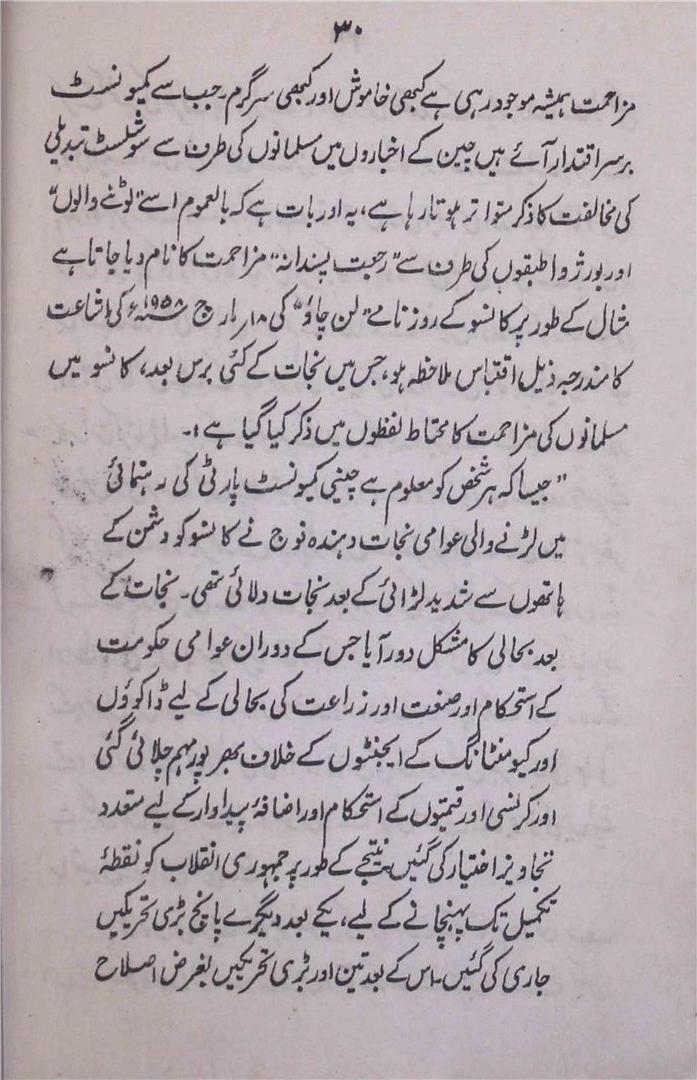 ۳۰
مزاحمت ہمیشہ موجود رہی ہے کبھی خاموش اور کبھی سرگرم۔ جب سے کمیونسٹ
برسراقتدار آئے ہیں چین کے اخباروں میں مسلمانوں کی طرف سے سوشلسٹ تبدیلی
کی مخالفت کا ذکر متواتر ہوتا رہا ہے، یہ اور بات ہے کہ بالعموم اسے ”لوٹنے والوں“
اور بورژوا طبقوں کی طرف سے ”رجعت پسندانہ“ مزاحمت کا نام دیا جاتا ہے
مثال کے طور پر کانسو کے روزنامے ”لن چاؤ“ کی ۱۸ مارچ ۱۹۵۸ء کی اشاعت
کا مندرجہ ذیل اقتباس ملاحظہ ہو، جس میں نجات کے کئی برس بعد، کانسو میں
مسلمانوں کی مزاحمت کا محتاط لفظوں میں ذکر کیا گیا ہے :۔
”جیسا کہ ہر شخص کو معلوم ہے چینی کمیونسٹ پارٹی کی رہنمائی
میں لڑنے والی عوامی نجات دہندہ فوج نے کانسو کو دشمن کے
ہاتھوں سے شدید لڑائی کے بعد نجات دلائی تھی۔ نجات کے
بعد بحالی کا مشکل دور آیا جس کے دوران عوامی حکومت
کے استحکام اور صنعت اور زراعت کی بحالی کے لیے ڈاکوؤں
اور کیومنٹانگ کے ایجنٹوں کے خلاف بھرپور مہم چلائی گئی
اور کرنسی اور قیمتوں کے استحکام اور اضافۂ پیداوار کے لیے متعدد
تجاویز اختیار کی گئیں۔ نتیجے کے طور پر جمہوری انقلاب کو نقطۂ
تکمیل تک پہنچانے کے لیے، یکے بعد دیگرے پانچ بڑی تحریکیں
جاری کی گئیں۔ اس کے بعد تین اور بڑی تحریکیں بغرض اصلاح